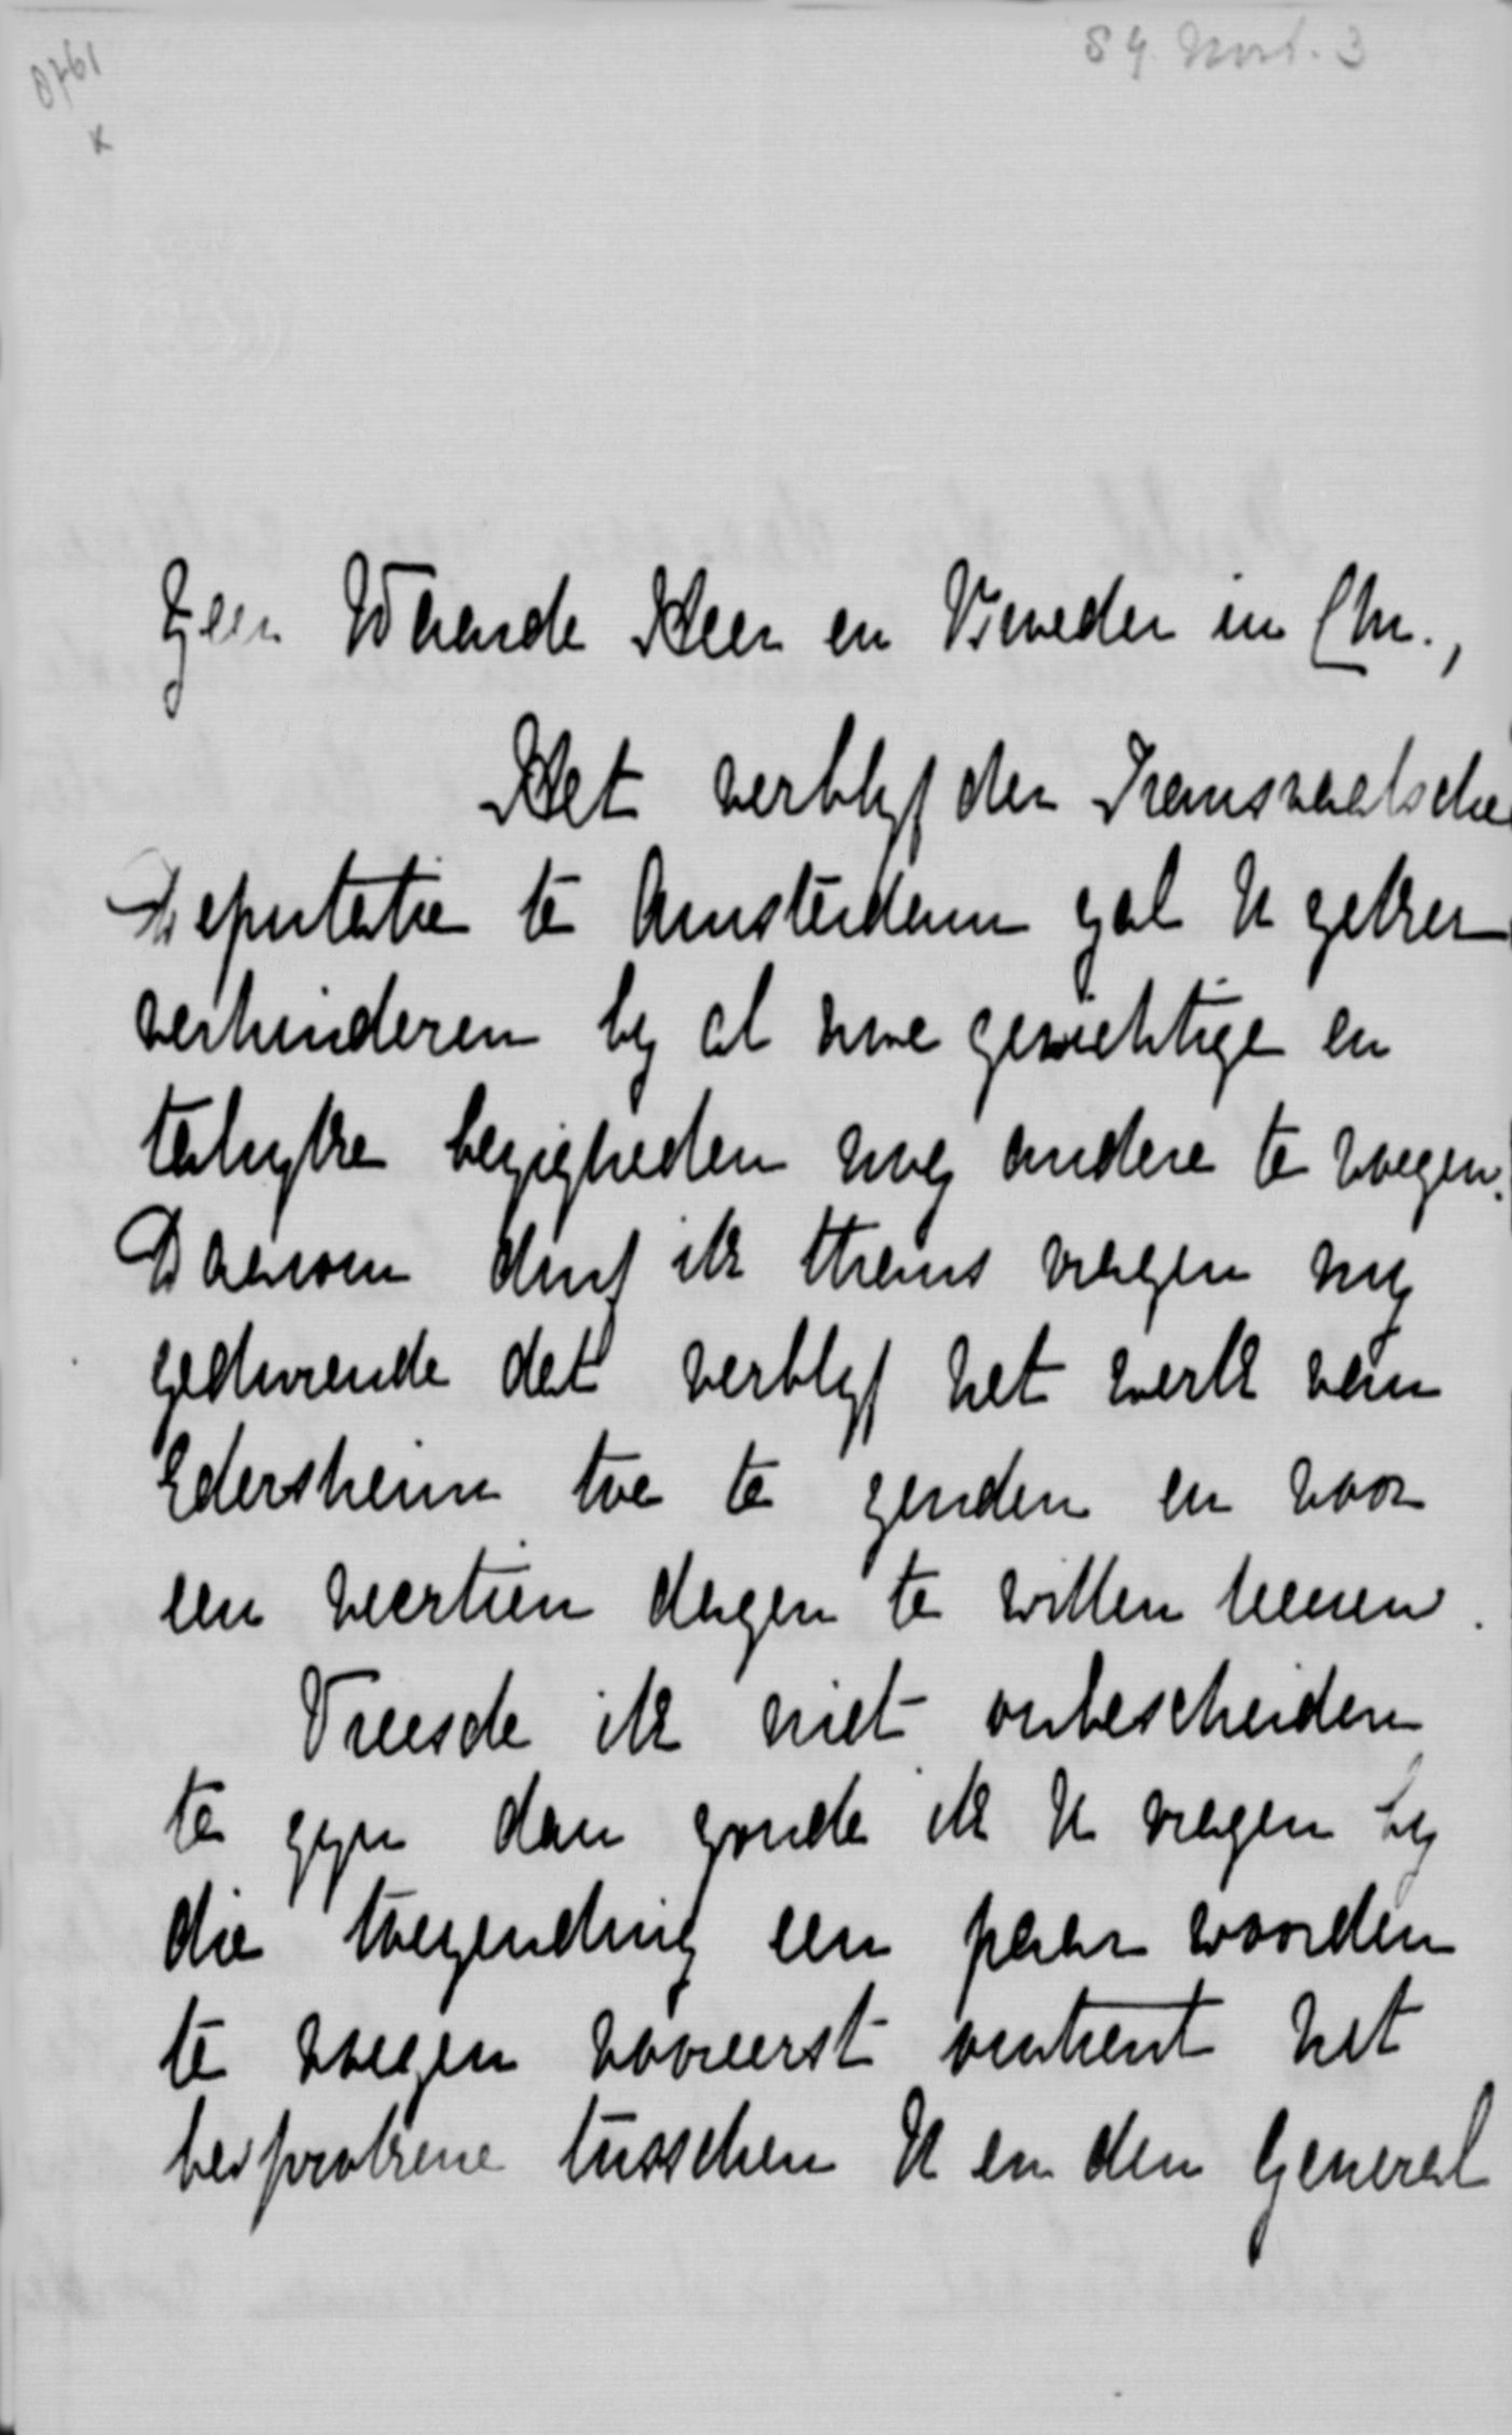 0761
x
84 Mrt. 3
Zeer Waarde Heer en Broeder in Chr.,
Het verblijf der Transvaalsche
Deputatie te Amsterdam zal U zeker
verhinderen bij al uwe gewichtige en
talrijke bezigheden nog andere te voegen.
Daarom durf ik thans vragen mij
gedurende dat verblijf het werk van
Edersheim toe te zenden en voor
een veertien dagen te willen leenen.
Vreesde ik niet onbescheiden
te zijn dan zoude ik U vragen bij
die toezending een paar woorden
te voegen vooreerst omtrent het
besprokene tusschen U en den Generaal